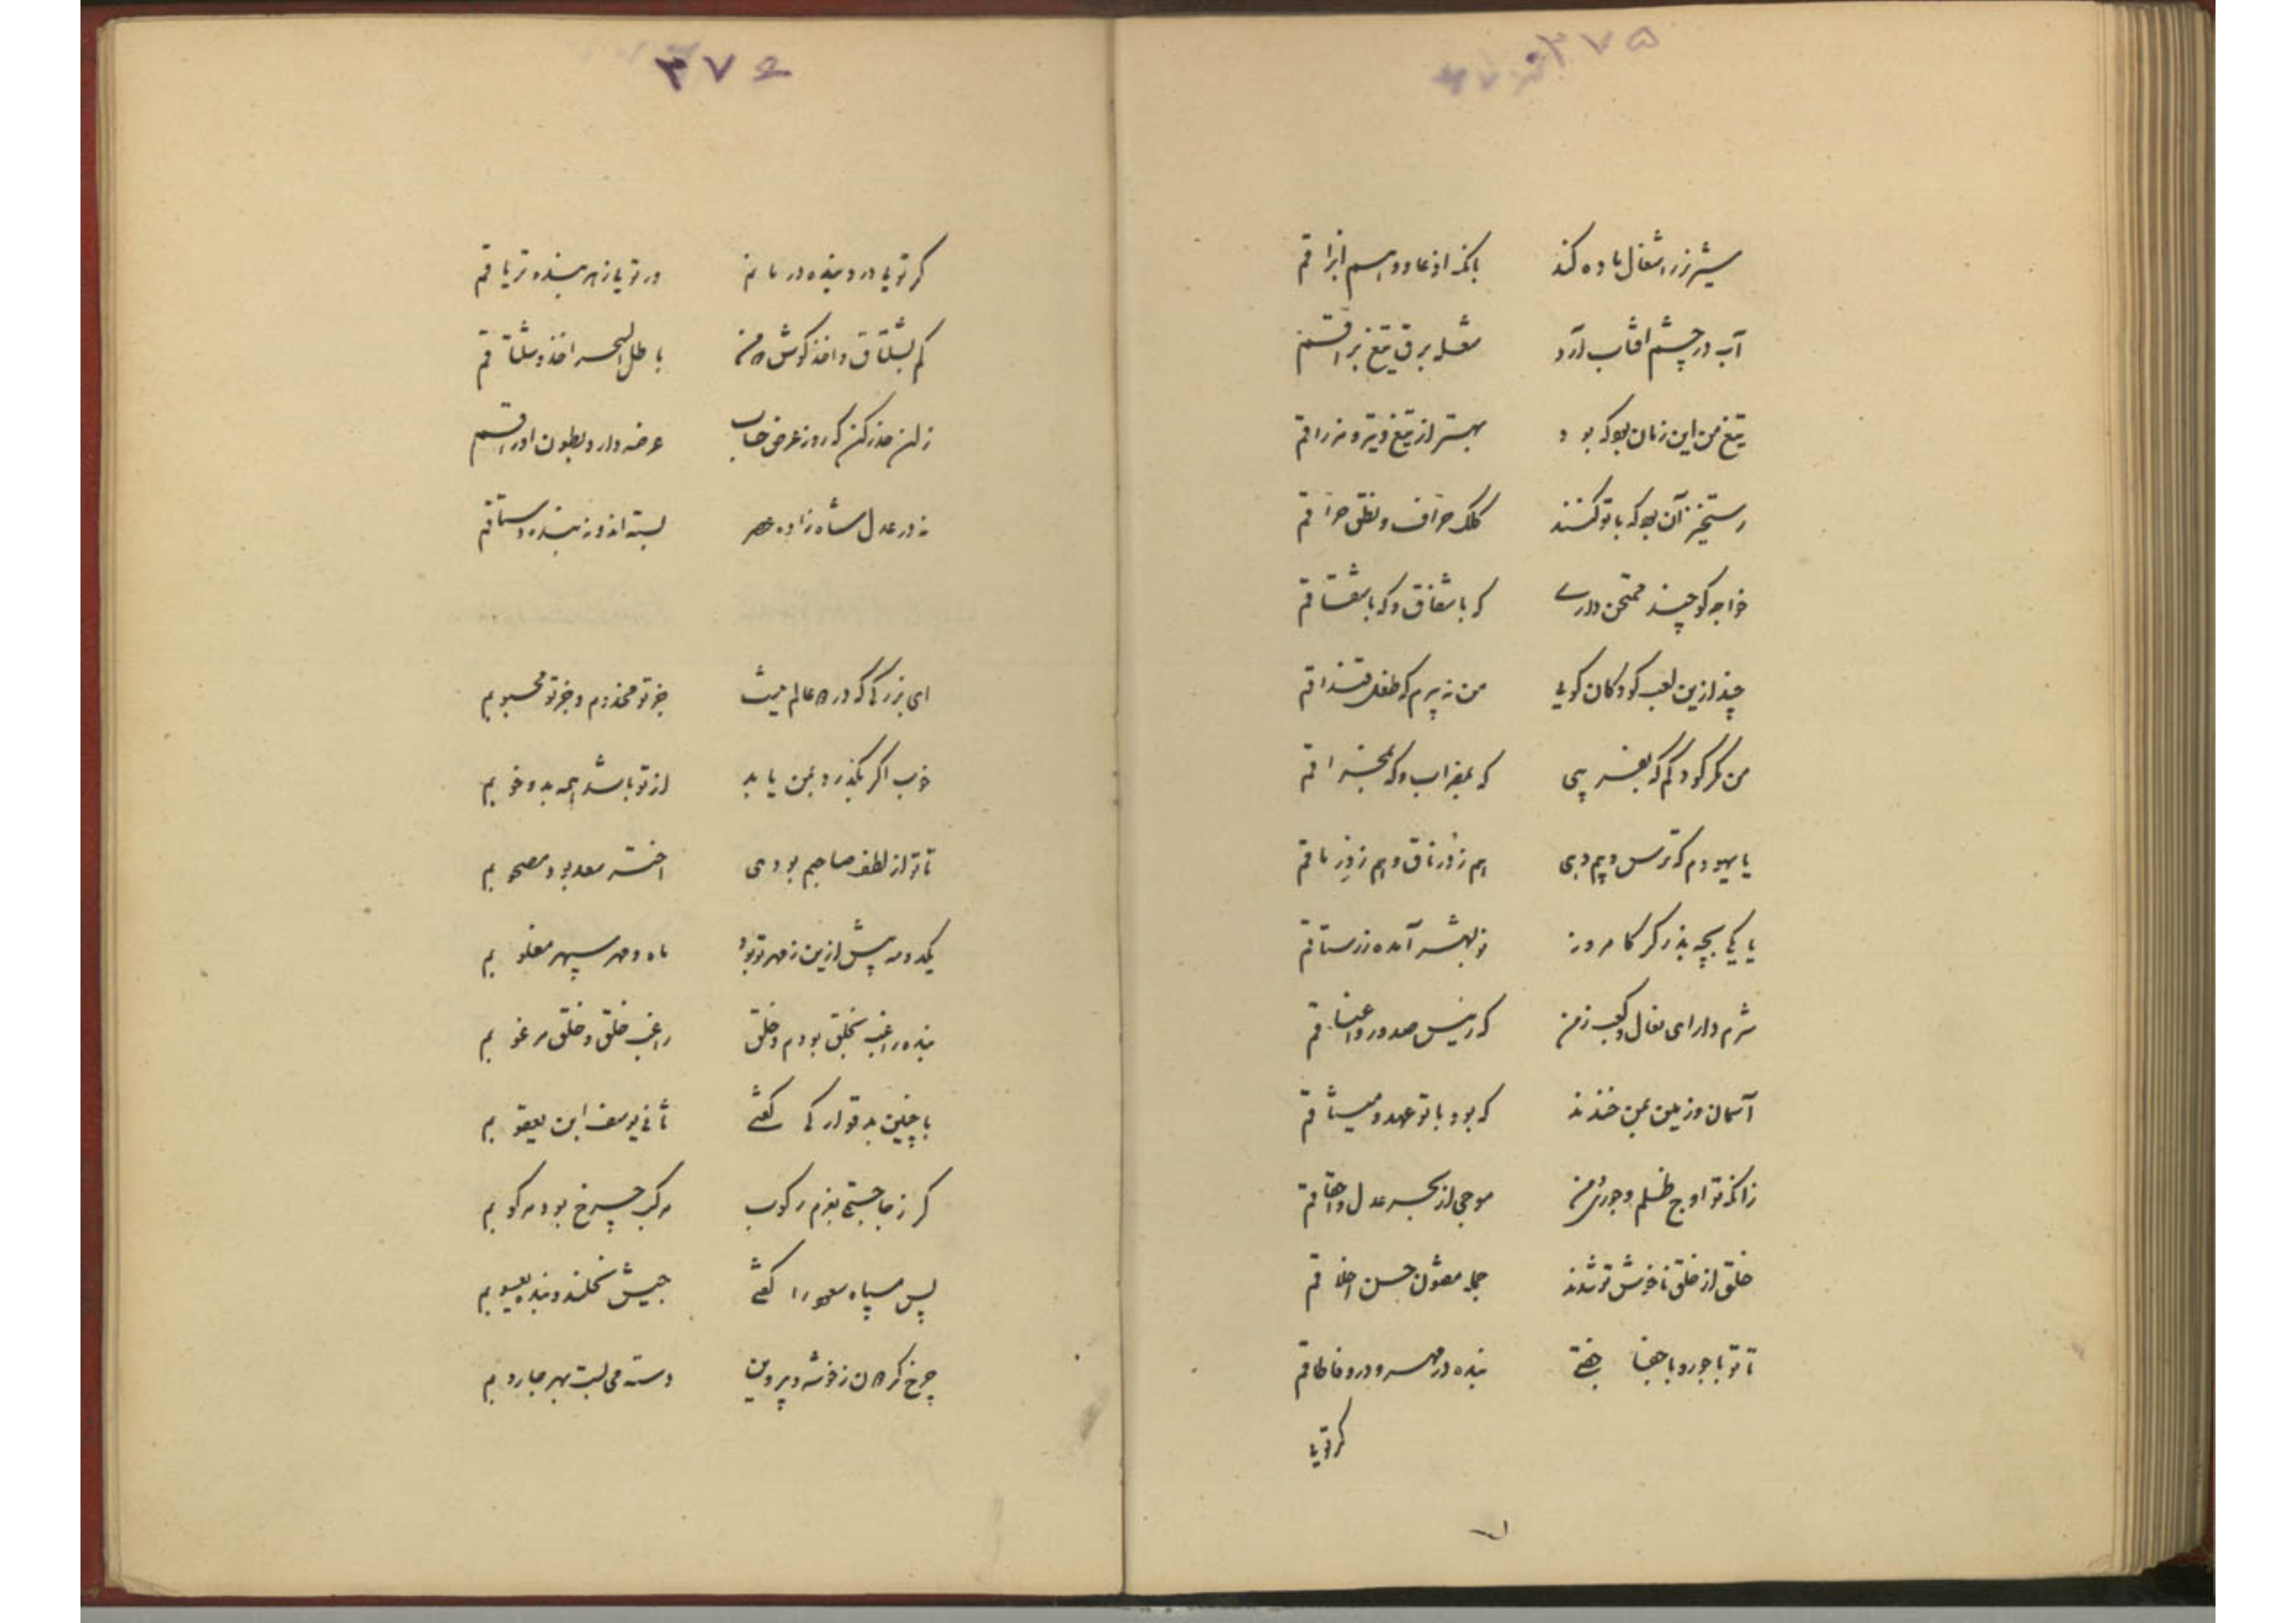 ۳۷۵
شیر نر را شغال ماده کند بانک ارعاد و ابراقم
آب در چشم افتاب آرد شعله برق تیغ براقم
تیغ من این زبان بود که بود بهتر از تیغ و تیر و مزراقم
رستخیز آن بود که با تو کنند کلک حراف و نطق حراقم
خواجه کو چند ممتحن داری که باشفاق و که باشقاقم
چند ازین لعب کودکان کویی من نه پیرم که طفل قنداقم
من مکر کودکم که بفریبی که بمضراب و که بمخراقم
یا یهودم که ترس و بیم دهی هم ز زرناق و هم ز
یا یکی بچه بذرکر کامروز نو بشهر آمده ز رستاقم
شرم دار ای نعال و کعب ز من که رئیس صدور و اعناقم
آسمان و زمین بمن خندند که بود با تو عهد و میثاقم
زانکه تو اوج ظلم و جوری و من موجی از بحر عدل و احقاقم
خلق از خلق ناخوش تو شدند جمله مفتون حسن اخلاقم
تا تو با جور و با جفا جفتی بنده در مهر و در وفا طاقم
کر تویی
۳۷۶
کر تویی درد بنده درمانم ور تویی زهر بنده تریاقم
کم بشلتاق و اخذ کوش که من باطل السحر اخذ و شلتاقم
زان حذر کن که روز عرض حساب عرضه دارد بطون اوراقم
نه در عدل شاه زاده عصر بسته اند و نه بنده
ای بزرکی که در همه عالم نیست جز تو مخدوم و جز تو محبوبم
خوب اکر بکذرد بمن یا بد از تو باشد همه بد و خوبم
تا تو از لطف صاحبم بودی اختر سعد بود مصحوبم
یکدو مه پیش ازین ز مهر تو بود ماه و مهر سپهر مغلوبم
بنده راغب بخلق بودم و خلق راغب خلق و خلق مرغوبم
با چنین بد قوارکی کفتی ثانی یوسف ابن یعقوبم
کر ز جا جستی بعزم رکوب مرکب چرخ بود مرکوبم
پس سپاه سعود را کفتی جیش نحلند و بنده یعسوبم
چرخ کردن ز خوشه پروین دسته می بست بهر جاروبم